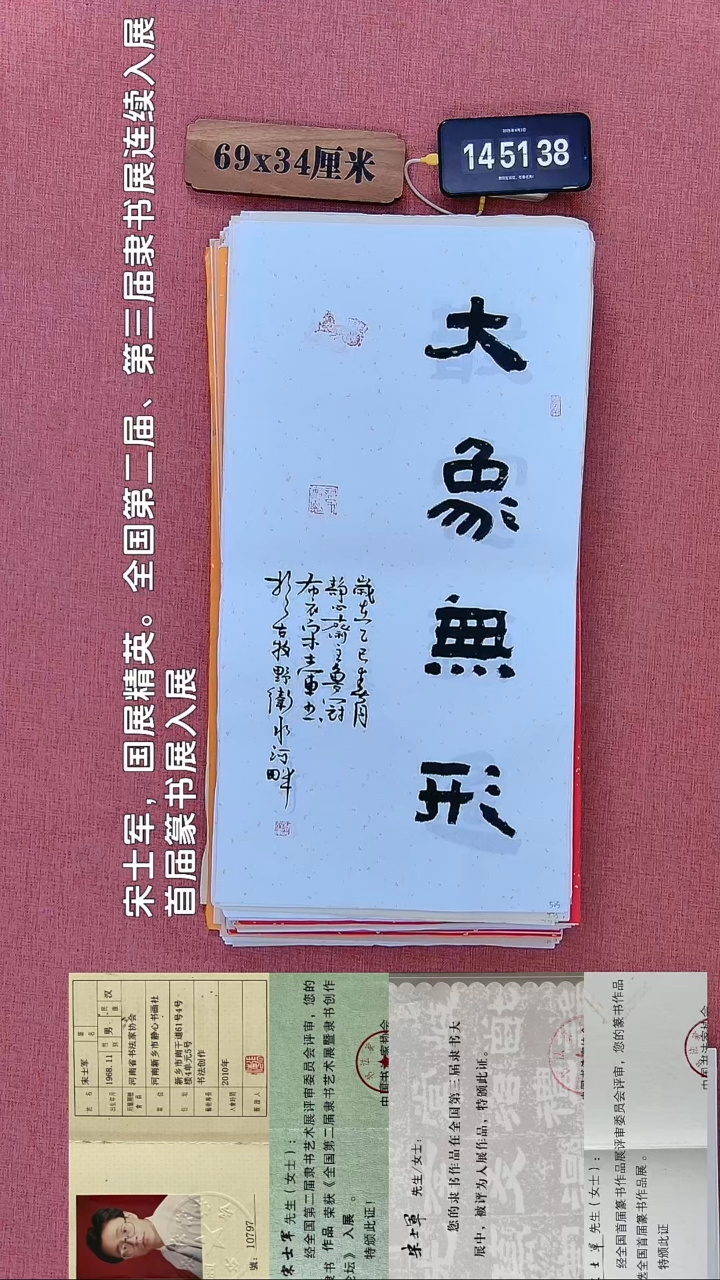 69x34厘米
14 51 38
大象無形
歲在乙巳春月
靜心齋主魯冠
布衣宋士軍書
於古牧野衛水河畔
宋士军，国展精英。全国第二届、第三届隶书展连续入展
首届篆书展入展
姓名 宋士军
性别 男 民族 汉
出生年月 1968.11
河南省书法家协会
单位 河南新乡市静心书画社
住址 新乡市南干道61号4号
楼4单元5号
书法创作
入会时间 2010年
號：10797
宋士军 先生（女士）：
经全国第二届隶书艺术展评审委员会评审，您的
隶书 作品 荣获《全国第二届隶书艺术展暨隶书创作
论坛》入展 。
特颁此证！
中国书法家协会
宋士军 先生/女士：
您的隶书作品在全国第三届隶书大
展中，被评为入展作品，特颁此证。
士军 先生（女士）：
经全国首届篆书作品展评审委员会评审，您的篆书作品
选全国首届篆书作品展。
特颁此证